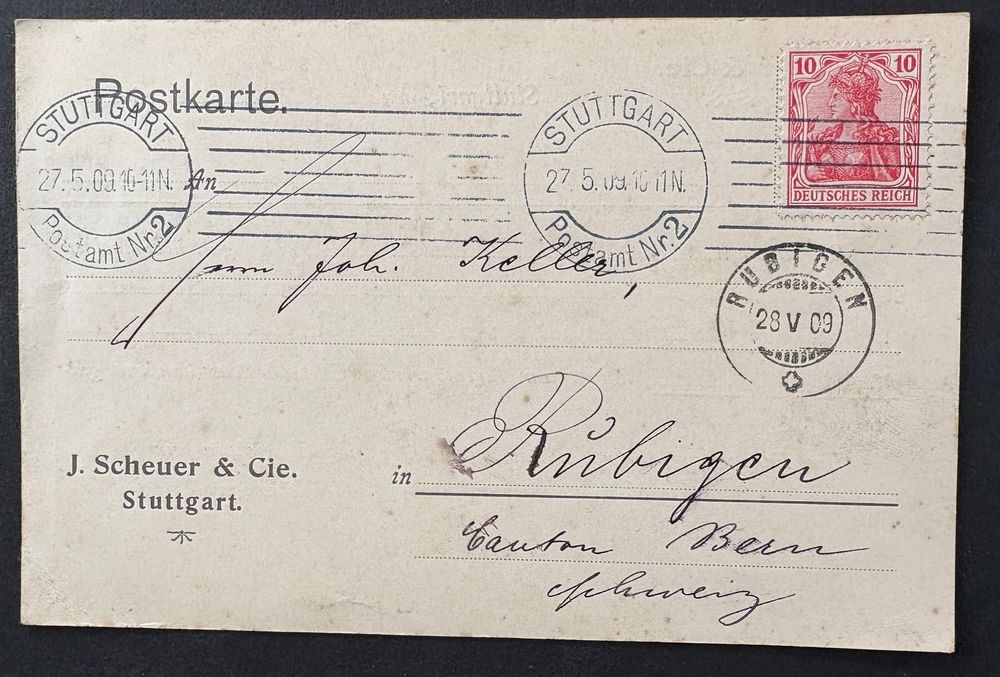 Postkarte.
STUTTGART
27.5.09.10-11N.
Postamt Nr.2
STUTTGART
27.5.09.10-11N.
Postamt Nr.2
10 10
DEUTSCHES REICH
An
Herrn Joh. Keller,
RUBIGEN
28 V 09
J. Scheuer & Cie.
Stuttgart.
in Rubigen
Canton Bern
Schweiz